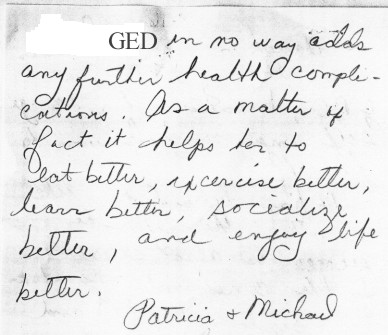 GED in no way adds
any further health compli-
cations. As a matter of
fact it helps her to
eat better, excercise better,
learn better, socialize
better, and enjoy life
better.
Patricia & Michael